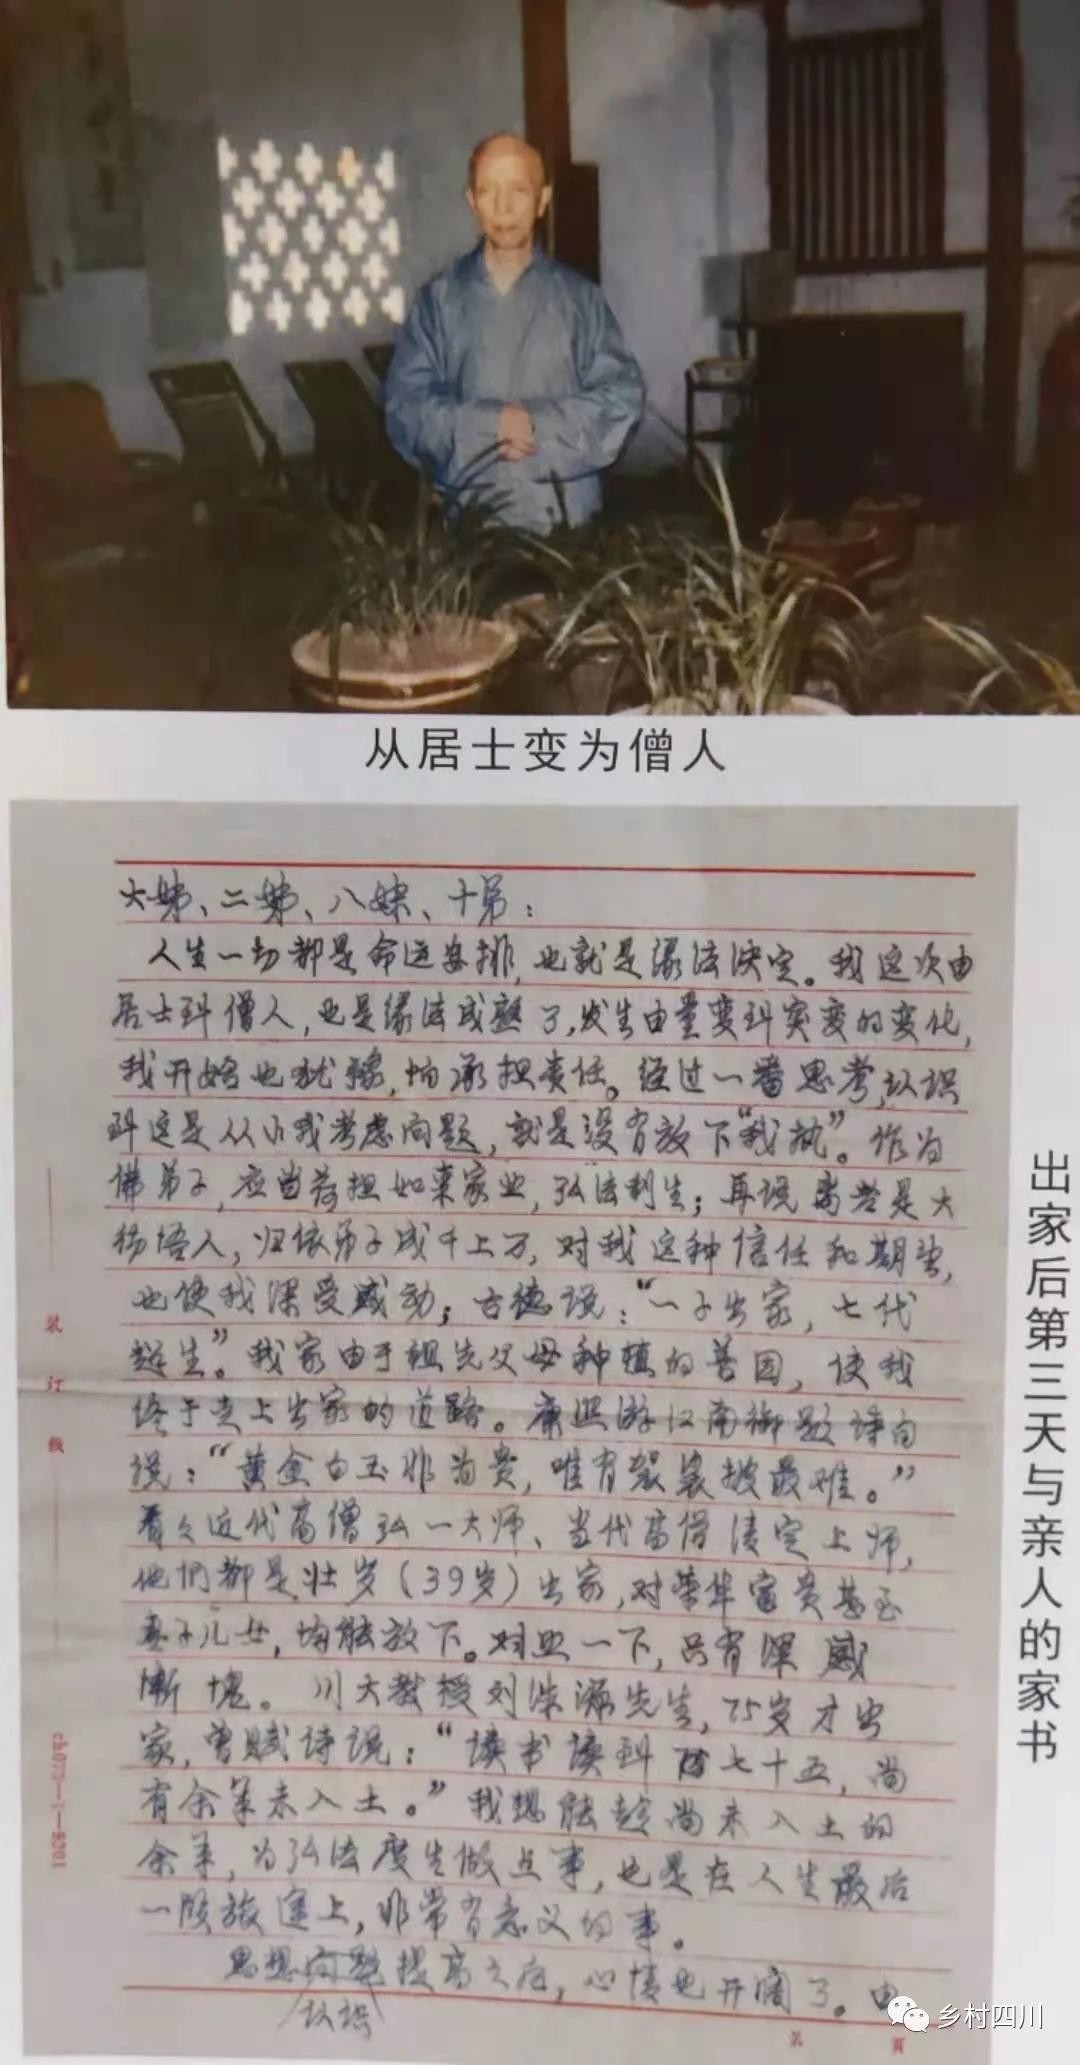 从居士变为僧人
大姊、二姊、八妹、十弟：
人生一切都是命运安排，也就是缘法决定。我这次由
居士到僧人，也是缘法成熟了，发生由量变到突变的变化，
我开始也犹豫，怕承担责任。经过一番思考，认识
到这是从小我考虑问题，就是没有放下“我执”。作为
佛弟子，应当荷担如来家业，弘法利生；再说 是大
彻悟人，归依弟子成千上万，对我这种信任和期望，
也使我深受感动；古德说：“一子出家，七代
超生”。我家由于祖先父母种植的善因，使我
终于走上出家的道路。康熙游江南御题诗句
说：“黄金白玉非为贵，唯有袈裟披最难。”
看看近代高僧弘一大师、当代高僧清定上师，
他们都是壮岁（39岁）出家，对荣华富贵甚至
妻子儿女，均能放下。对照一下，只有深感
惭愧。川大教授刘 先生，75岁才出
家，曾赋诗说：“读书读到 七十五，尚
有余年未入土。”我想能趁尚未入土的
余年，为弘法度生做点事，也是在人生最后
一段旅途上，非常有意义的事。
思想认识提高之后，心情也开阔了。由
出家后第三天与亲人的家书
装订线
第 页
乡村四川